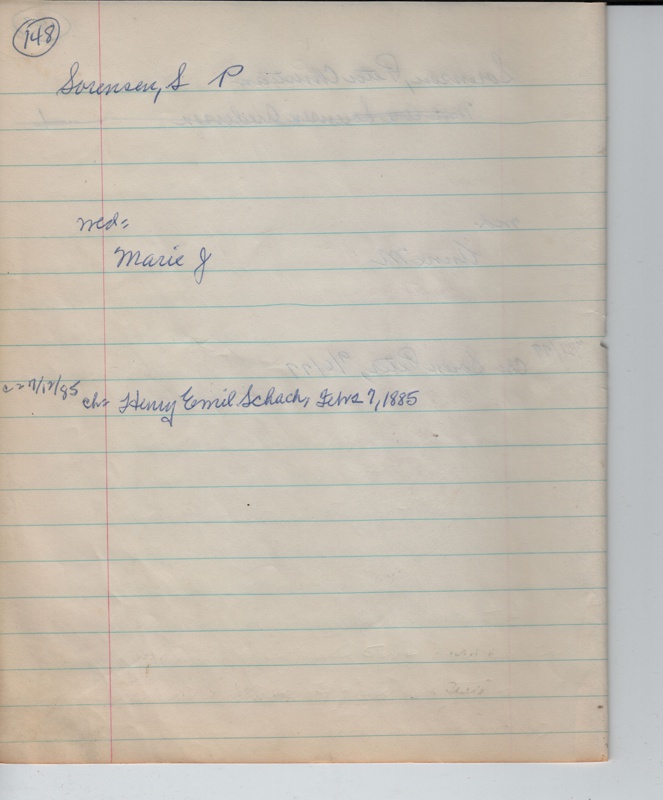 148
Sorensen, S P
wed=
Marie J
c=7/12/85 ch= Henry Emil Schach, Febr 7, 1885